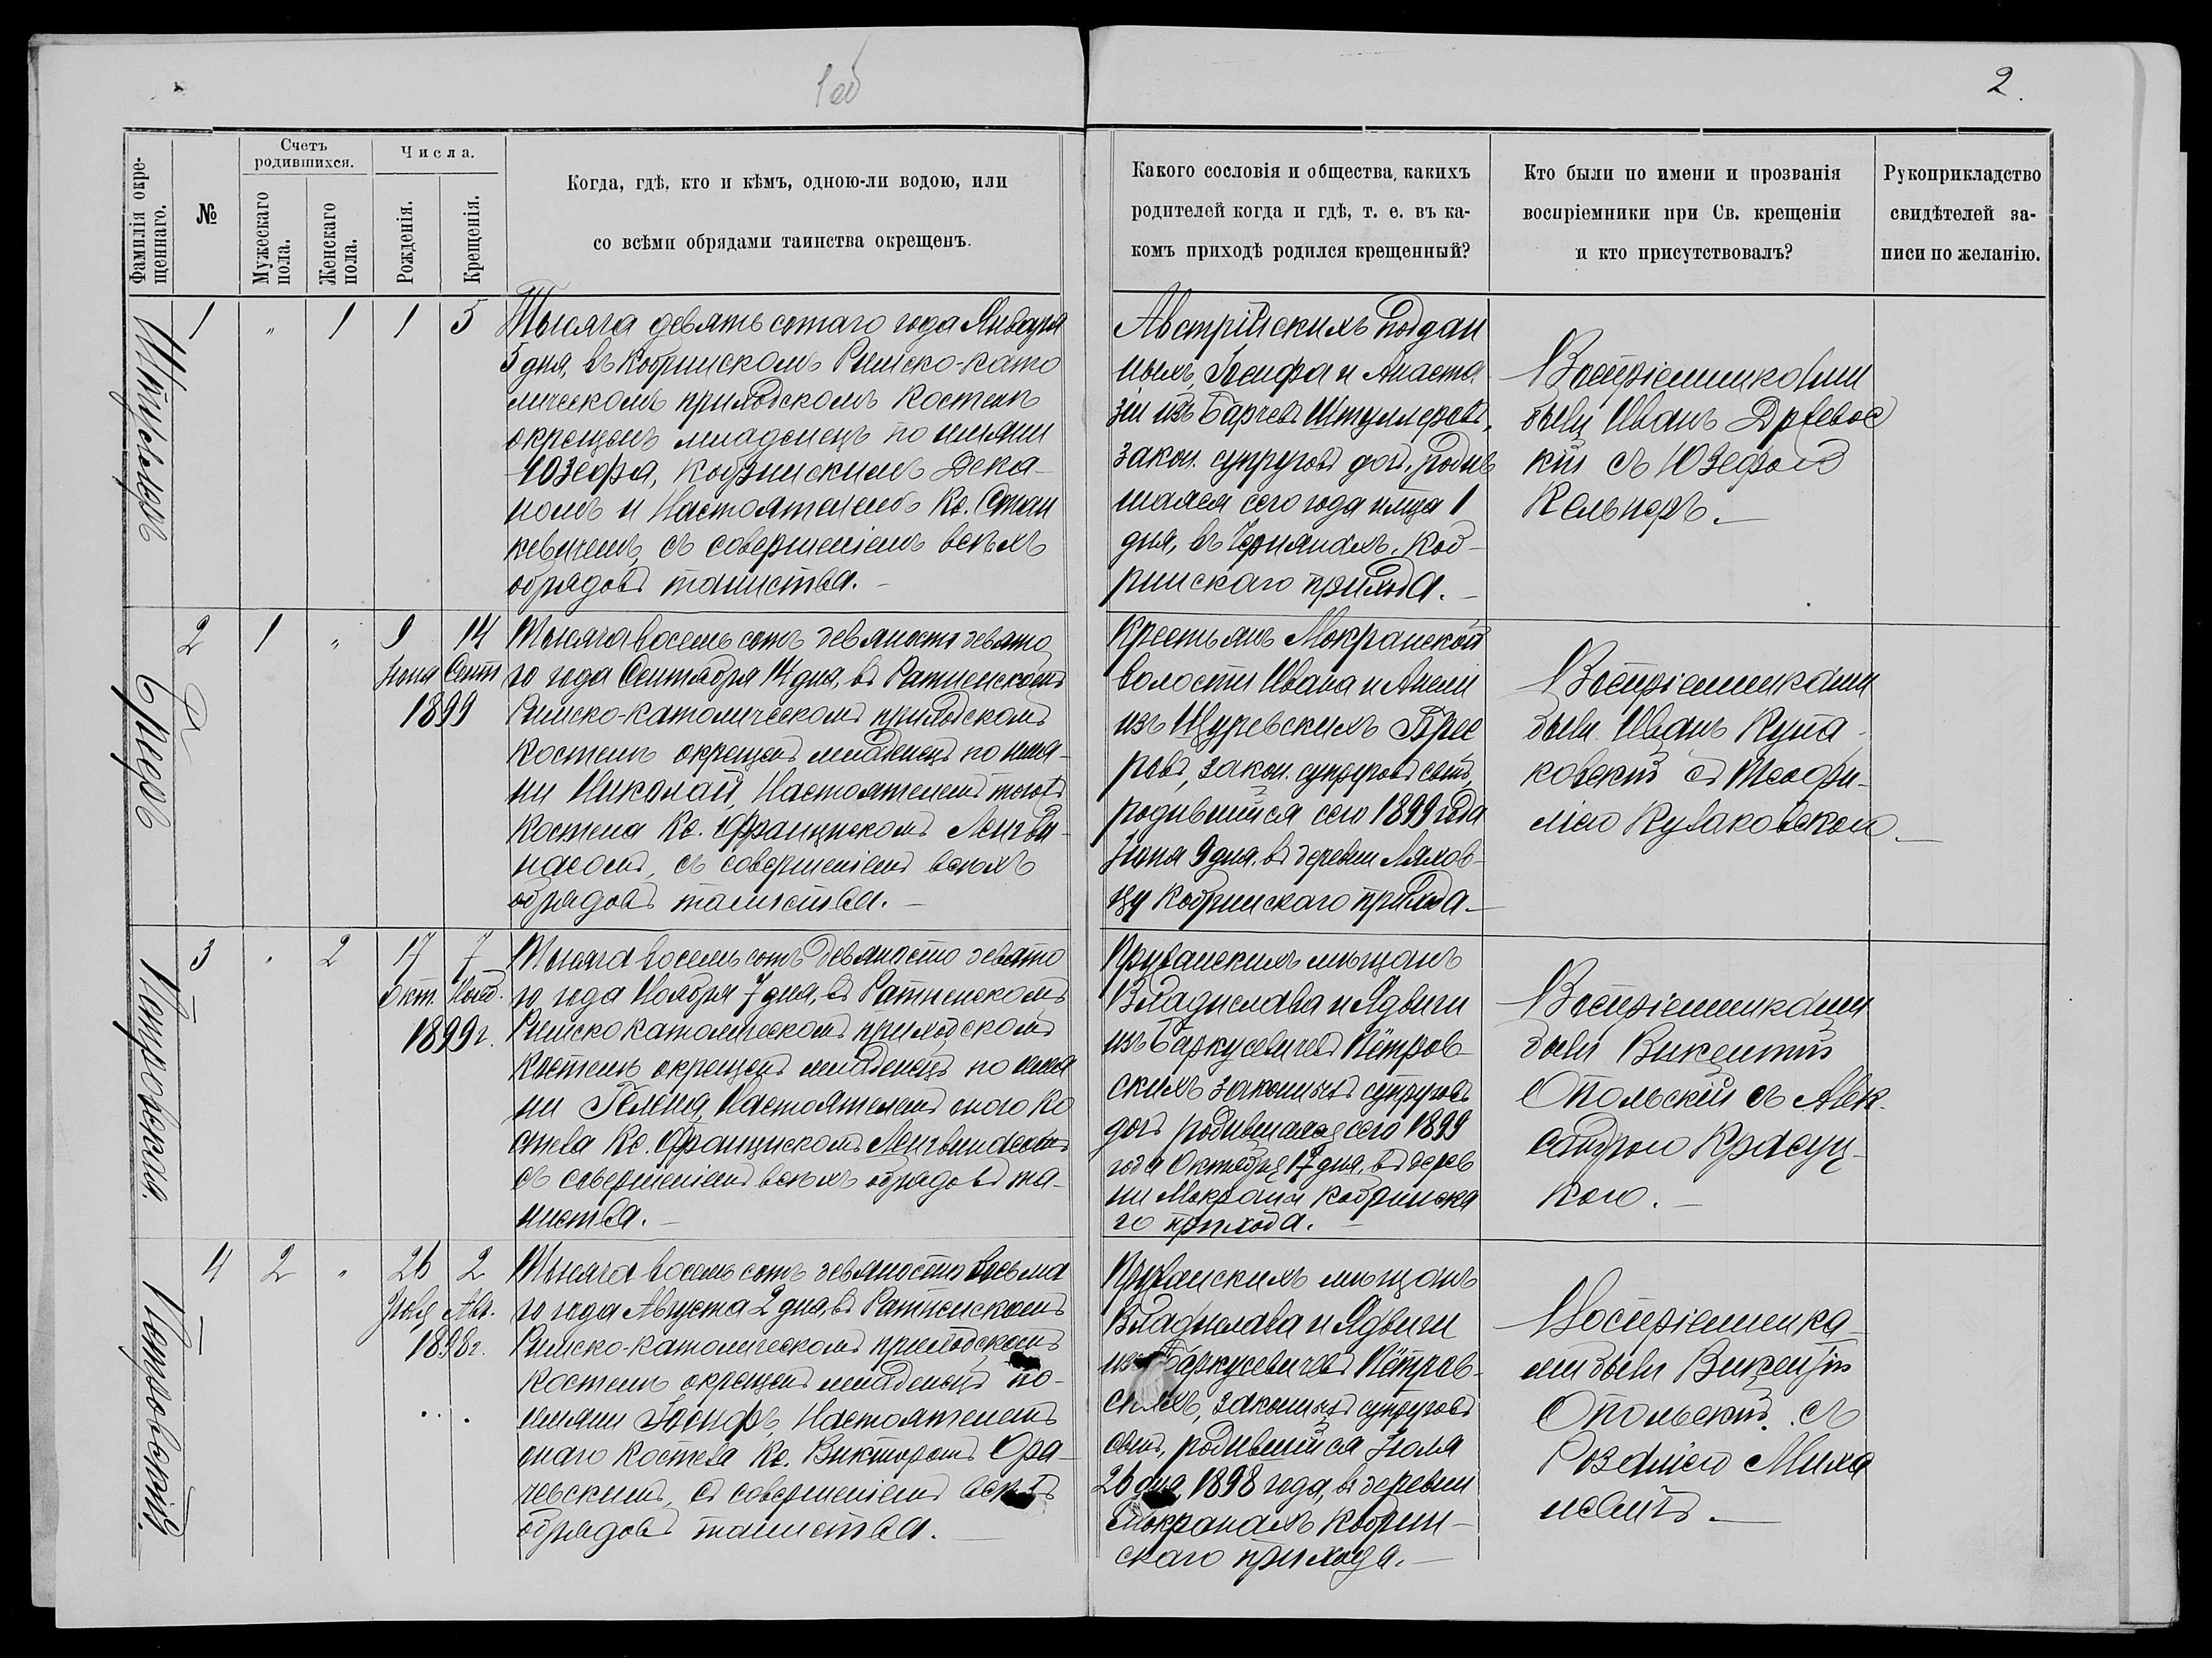 1об
2.
Фамилія окре-
щеннаго.
№
Счетъ
родившихся.
Мужескаго
пола.
Женскаго
пола.
Числа.
Рожденія.
Крещенія.
Когда, гдѣ, кто и кѣмъ, одною-ли водою, или
со всѣми обрядами таинства окрещенъ.
Какого сословія и общества, какихъ
родителей когда и гдѣ, т. е. въ ка-
комъ приходѣ родился крещенный?
Кто были по имени и прозванія
воспріемники при Св. крещеніи
и кто присутствовалъ?
Рукоприкладство
свидѣтелей за-
писи по желанію.
1 " 1 1 5
Тысяча девятьсотаго года Января
5 дня, въ Кобринскомъ Римско-като
лическомъ приходскомъ Костелѣ
окрещенъ младенецъ по имяни
Юзефа, Кобринскимъ Дека-
номъ и Настоятелемъ Кс. Стан
кевичемъ, съ совершеніемъ всѣхъ
обрядовъ таинства. -
Австрійскихъ поддан
ныхъ, Іосифа и Анаста
зіи изъ Барчевъ
закон. супруговъ дочь, родив
шаяся сего года и м-ца 1
дня, въ Чернянахъ, Коб-
ринскаго прихода. -
Воспріемниками
были Иванъ
съ Юзефою
Кельнеръ. -
2 1 " 9 14
Іюня Сент
1899
Тысяча восемь сотъ девяносто девято
го года Сентября 14 дня, въ Ратненскомъ
Римско-католическомъ приходскомъ
Костелѣ окрещенъ младенецъ по имя-
ни Николай, Настоятелемъ тогожъ
Костела Кс. Францискомъ Лингви-
насомъ, съ совершеніемъ всѣхъ
обрядовъ таинства. -
Крестьянъ Мокранской
волости Ивана и Анели
изъ Щуревскихъ Брее
ровъ, закон. супруговъ сынъ,
родившійся сего 1899 года
Іюня 9 дня въ деревни Ляхов-
цы Кобринскаго прихода -
Брееръ
Воспріемниками
были Иванъ
съ Теофи-
лею Кулаковскою -
3 " 2 17 7
Окт. Нояб.
1899 г.
Тысяча восемь сотъ девяносто девято
го года Ноября 7 дня, въ Ратненскомъ
Римско католическомъ приходскомъ
Костелѣ окрещенъ младенецъ по имя
ни Гелена, Настоятелемъ оного Ко
стела Кс. Францискомъ Лингвинасомъ
съ совершеніемъ всѣхъ обрядовъ та-
инства. -
Піотровская.
Пружанскихъ мѣщанъ
Владислава и Ядвиги
изъ Баркусевичевъ Піотров-
скихъ законныхъ супруговъ
дочь родившаяся сего 1899
года Октября 17 дня, въ дерев
ни Мокраны Кобринска
го прихода. -
Воспріемниками
были Викентій
Опольскій съ Алек-
сандрою Красуц-
кою. -
4 2 " 26 2
Іюля Авг.
1898 г.
Тысяча восемь сотъ девяносто восьма
го года Августа 2 дня, въ Ратненскомъ
Римско-католическомъ приходскомъ
Костелѣ окрещенъ младенецъ по-
имяни Іосифъ, Настоятелемъ
оного Костела Кс. Викторомъ Ора-
чевскимъ, съ совершеніемъ всѣхъ
обрядовъ таинства. -
Піотровскій.
Пружанскихъ мѣщанъ
Владислава и Ядвиги
изъ Баркусевичевъ Піотров-
скихъ, законныхъ супруговъ
сынъ, родившійся Іюля
26 дня, 1898 года, въ деревни
Мокранахъ Кобрин-
скаго прихода. -
Воспріемника-
ми были Викентій
Опольскій съ
Розаліею